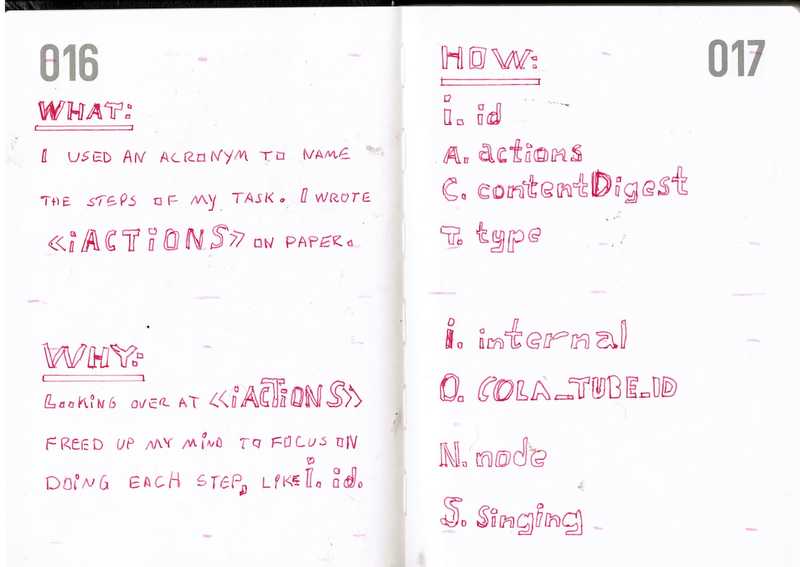 016
WHAT:
I USED AN ACRONYM TO NAME
THE STEPS OF MY TASK. I WROTE
«iACTiONS» ON PAPER.
WHY:
LOOKING OVER AT «iACTiONS»
FREED UP MY MIND TO FOCUS ON
DOING EACH STEP, LIKE i. id.
017
HOW:
i. id
A. actions
C. contentDigest
T. type
i. internal
O. COLA_TUBE_ID
N. node
S. Singing